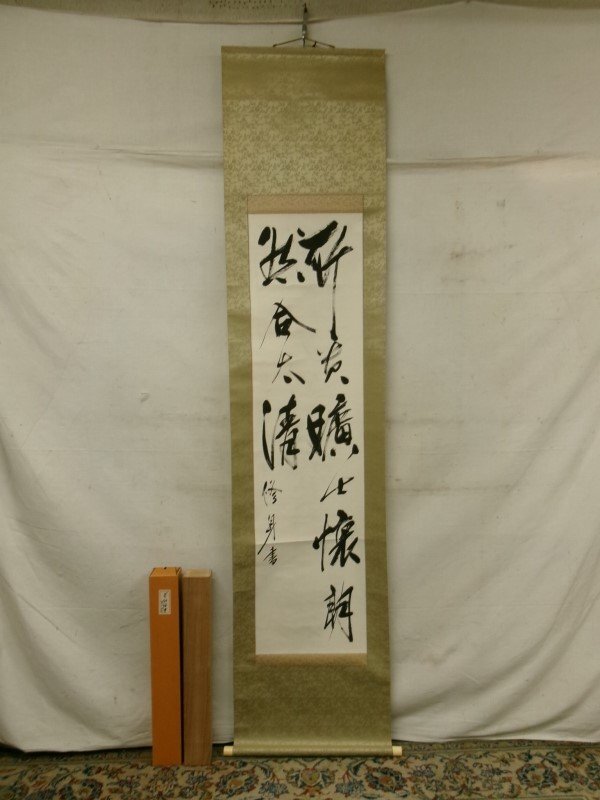 所貴曠士懷朗
然合太清
修身書